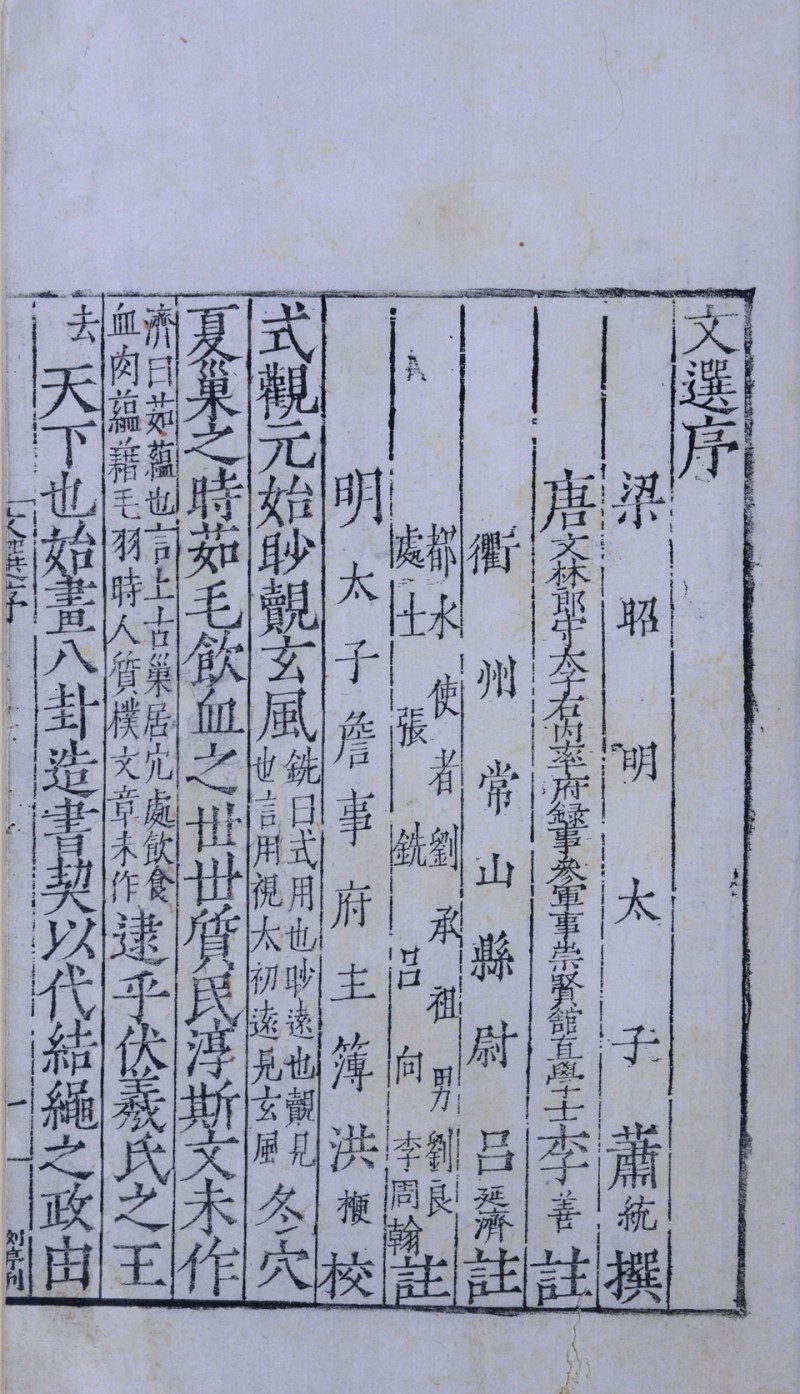 文選序
梁昭明太子蕭統撰
唐文林郎守太子右内率府録事參軍事崇賢館直學士李善註
衢州常山縣尉呂延濟註
都水使者劉承祖男劉良
處士張銑呂向李周翰註
明太子詹事府主簿洪楩校
式觀元始眇覿玄風
銑曰式用也眇遠也覿見
也言用視太初遠見玄風
冬穴
夏巢之時茹毛飲血之世世質民淳斯文未作
濟曰茹蘊也言上古巢居穴處飲食
血肉蘊藉毛羽時人質樸文章未作
逮乎伏羲氏之王
去
天下也始畫八卦造書契以代結繩之政由
文選序
一